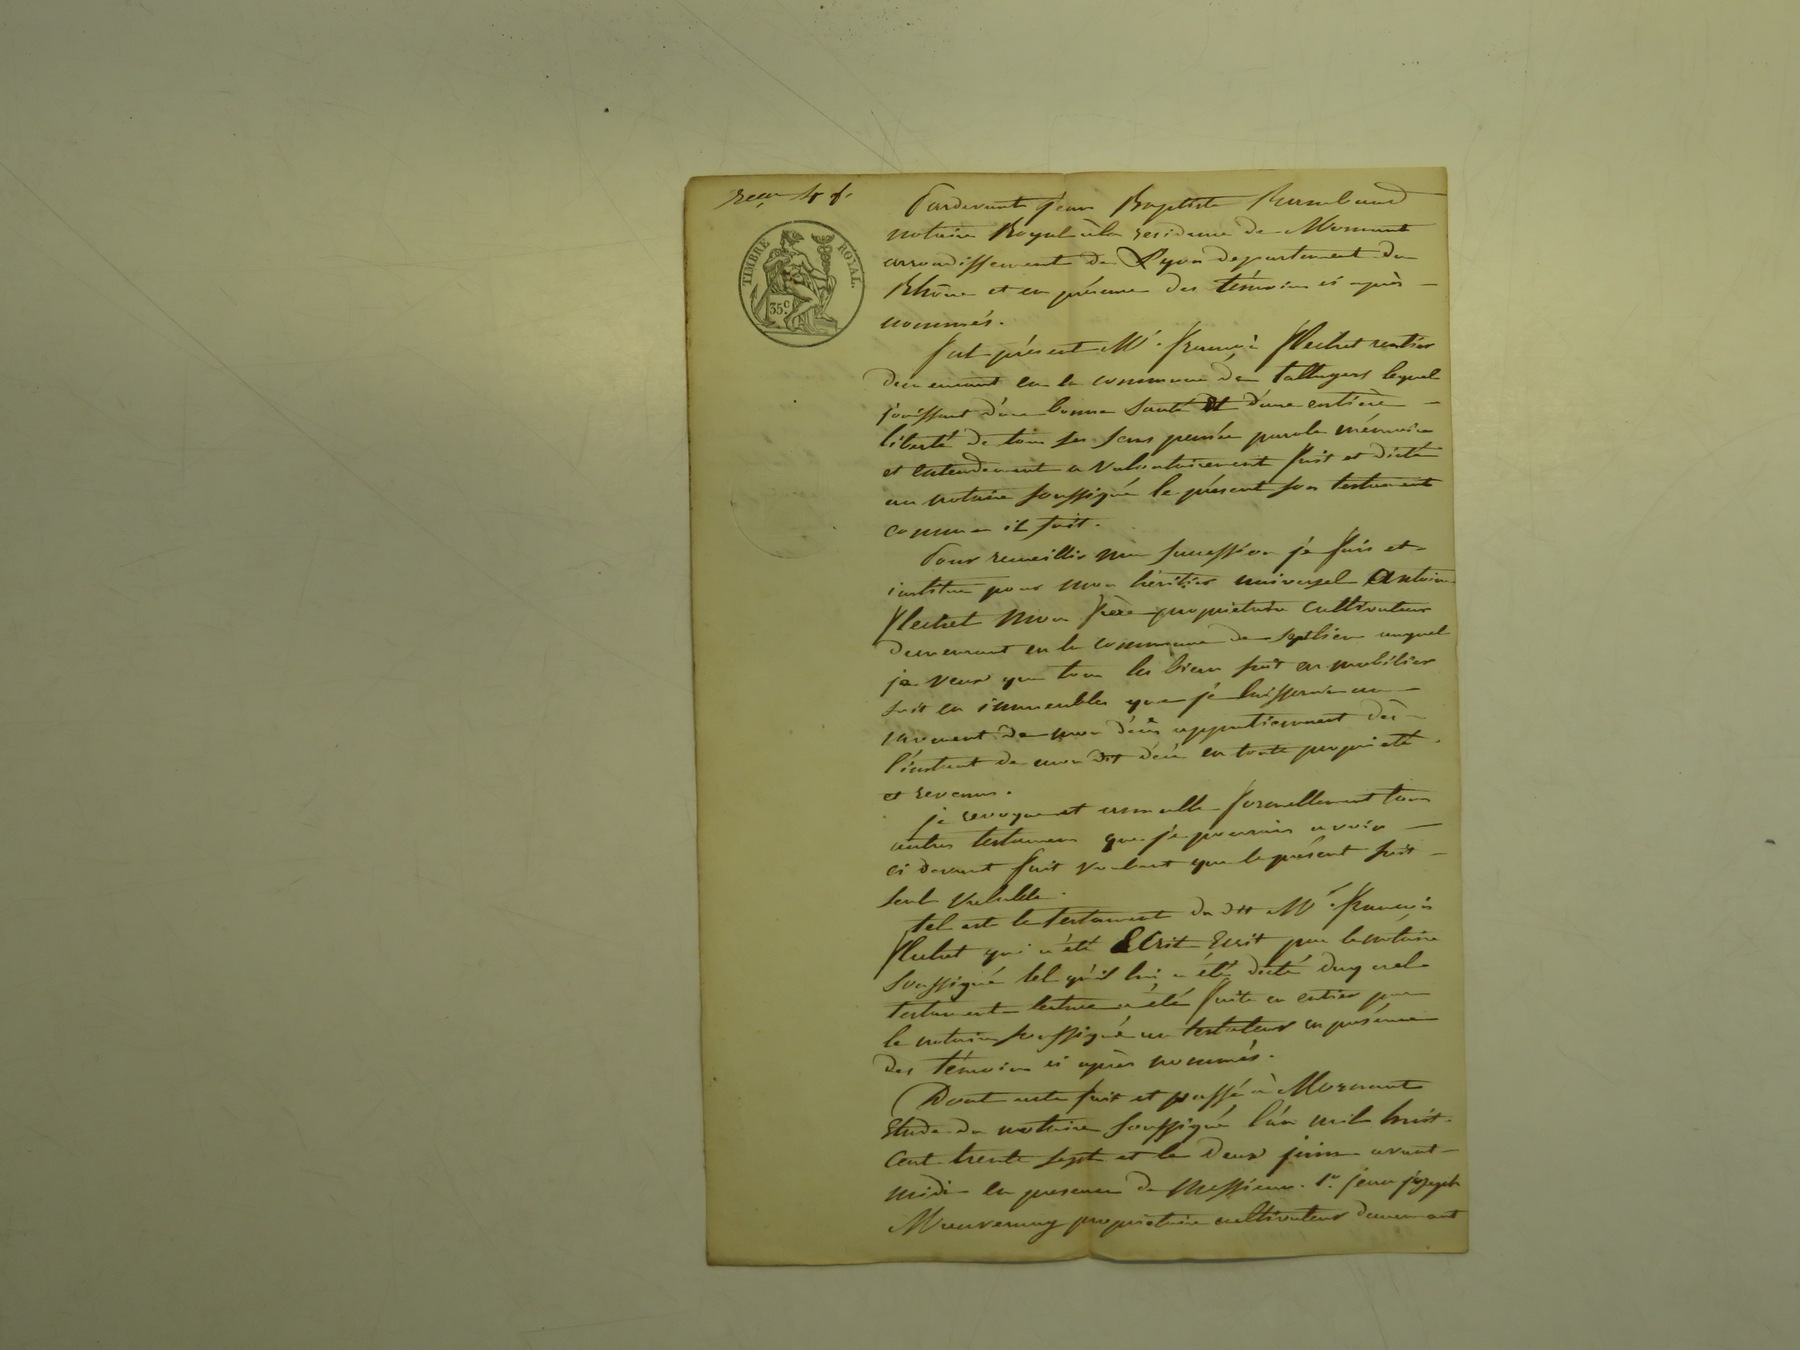 TIMBRE ROYAL.
35 C.
Pardevant jean Baptiste Rambaud
notaire Royal à la residence de Mornant
arrondissement de Lyon departement du
Rhône et en présence des témoins ci après
nommés.
fut présent Mr. françois flechet rentier
demeurant en la commune de talluyers lequel
jouissant d'une bonne santé et d'une entière
liberté de tous ses sens pensée parole mémoire
et entendement a volontairement fait et dicté
au notaire soussigné le présent son testament
comme il suit.
Pour recueillir ma succession je fais et
institue pour mon héritier universel Antoine
flechet mon frère propriétaire cultivateur
demeurant en la commune de auquel
je veux que tous les biens soit en mobilier
soit en immeubles que je laisserai au
moment de mon décès appartiennent dès
l'instant de mon dit décès en toute propriété
et revenus.
je revoque et annulle formellement tous
autres testamens que je pourrais avoir
ci devant fait voulant que le présent soit
seul valable.
tel est le testament du dit Mr. françois
flechet qui a été Ecrit Ecrit par le notaire
soussigné tel qu'il lui a été dicté duquel
testament lecture a été faite en entier par
le notaire soussigné au testateur en présence
des témoins ci après nommés.
Dont acte fait et passé à Mornant
Etude du notaire soussigné l'an mil huit
cent trente sept et le deux juin avant
midi en presence de Messieurs. 1º. jean joseph
propriétaire cultivateur demeurant